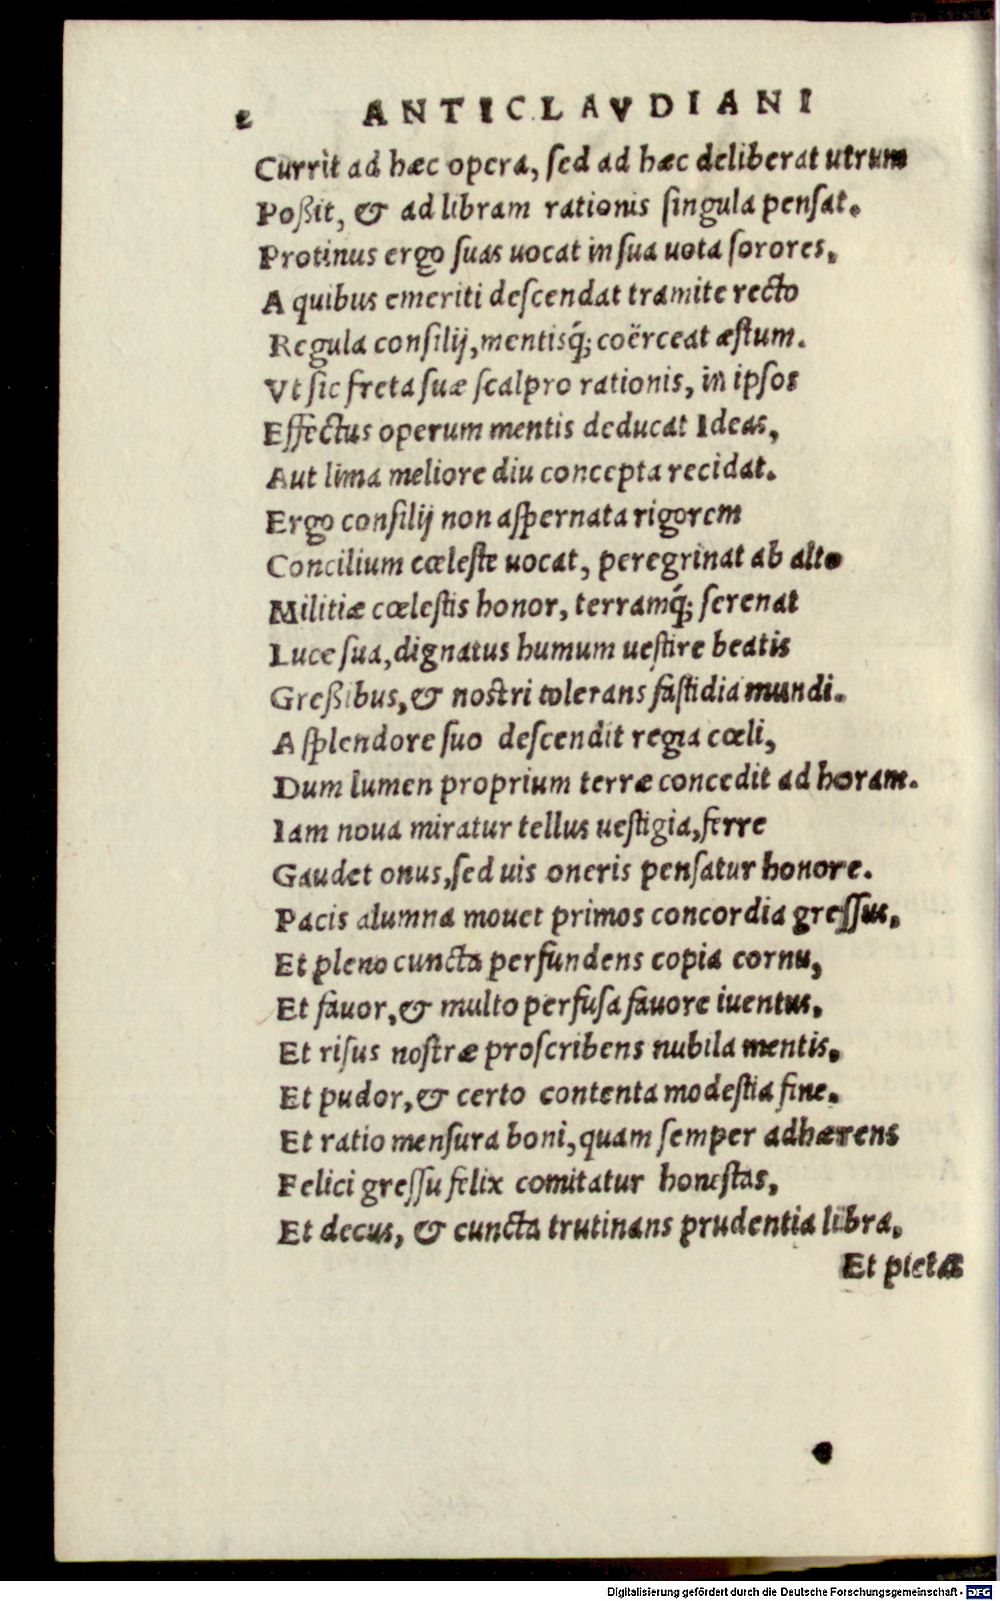 2 ANTICLAVDIANI
Currit ad hæc opera, ſed ad hæc deliberat utrum
Poßit, & ad libram rationis ſingula penſat.
Protinus ergo ſuas uocat in ſua uota ſorores,
A quibus emeriti deſcendat tramite recto
Regula conſilij, mentisq́; coërceat æſtum.
Vt ſic freta ſuæ ſcalpro rationis, in ipſos
Effectus operum mentis deducat Ideas,
Aut lima meliore diu concepta recidat.
Ergo conſilij non aſpernata rigorem
Concilium cœleſte uocat, peregrinat ab alto
Militiæ cœleſtis honor, terramq́; ſerenat
Luce ſua, dignatus humum ueſtire beatis
Greßibus, & noſtri tolerans faſtidia mundi.
A ſplendore ſuo deſcendit regia cœli,
Dum lumen proprium terræ concedit ad horam.
Iam noua miratur tellus ueſtigia, ferre
Gaudet onus, ſed uis oneris penſatur honore.
Pacis alumna mouet primos concordia greſſus,
Et pleno cuncta perfundens copia cornu,
Et fauor, & multo perfuſa fauore iuentus,
Et riſus noſtræ proſcribens nubila mentis,
Et pudor, & certo contenta modeſtia fine.
Et ratio menſura boni, quam ſemper adhærens
Felici greſſu felix comitatur honeſtas,
Et decus, & cuncta trutinans prudentia libra,
Et pietas
Digitalisierung gefördert durch die Deutsche Forschungsgemeinschaft - DFG